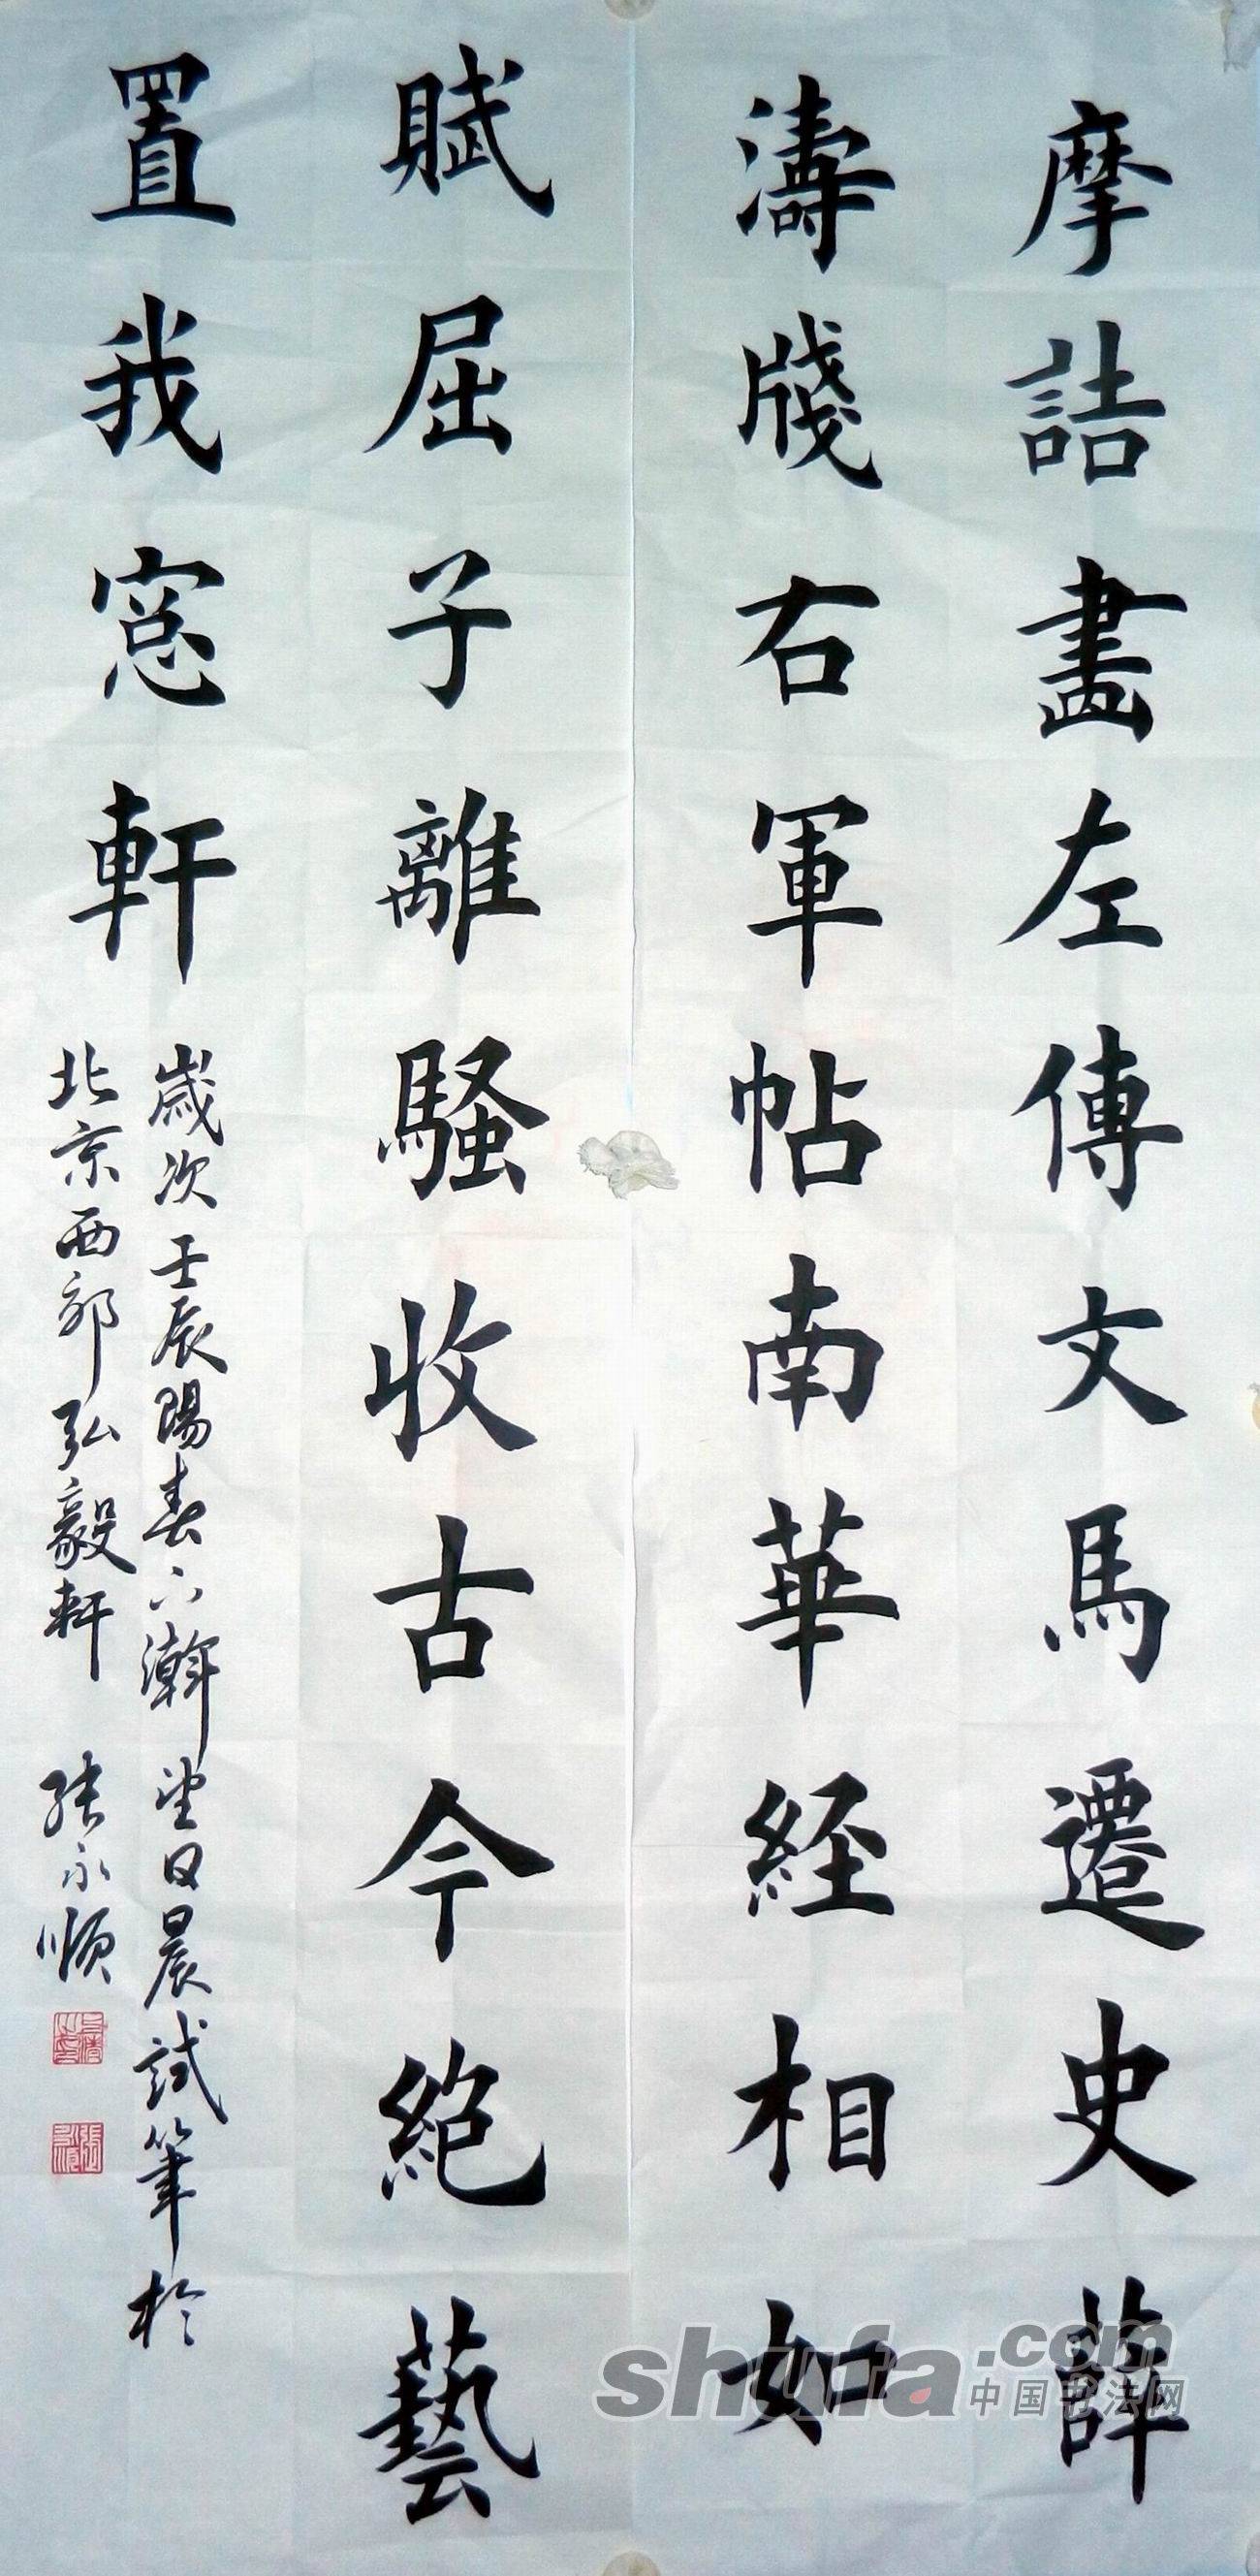 摩詰畫左傳文馬遷史薛
濤牋右軍帖南華経相如
賦屈子離騷收古今絕藝
置我窓軒
歲次壬辰陽春下瀚望日晨試筆於
北京西郊弘毅軒 張永順
shufa.com
中国书法网